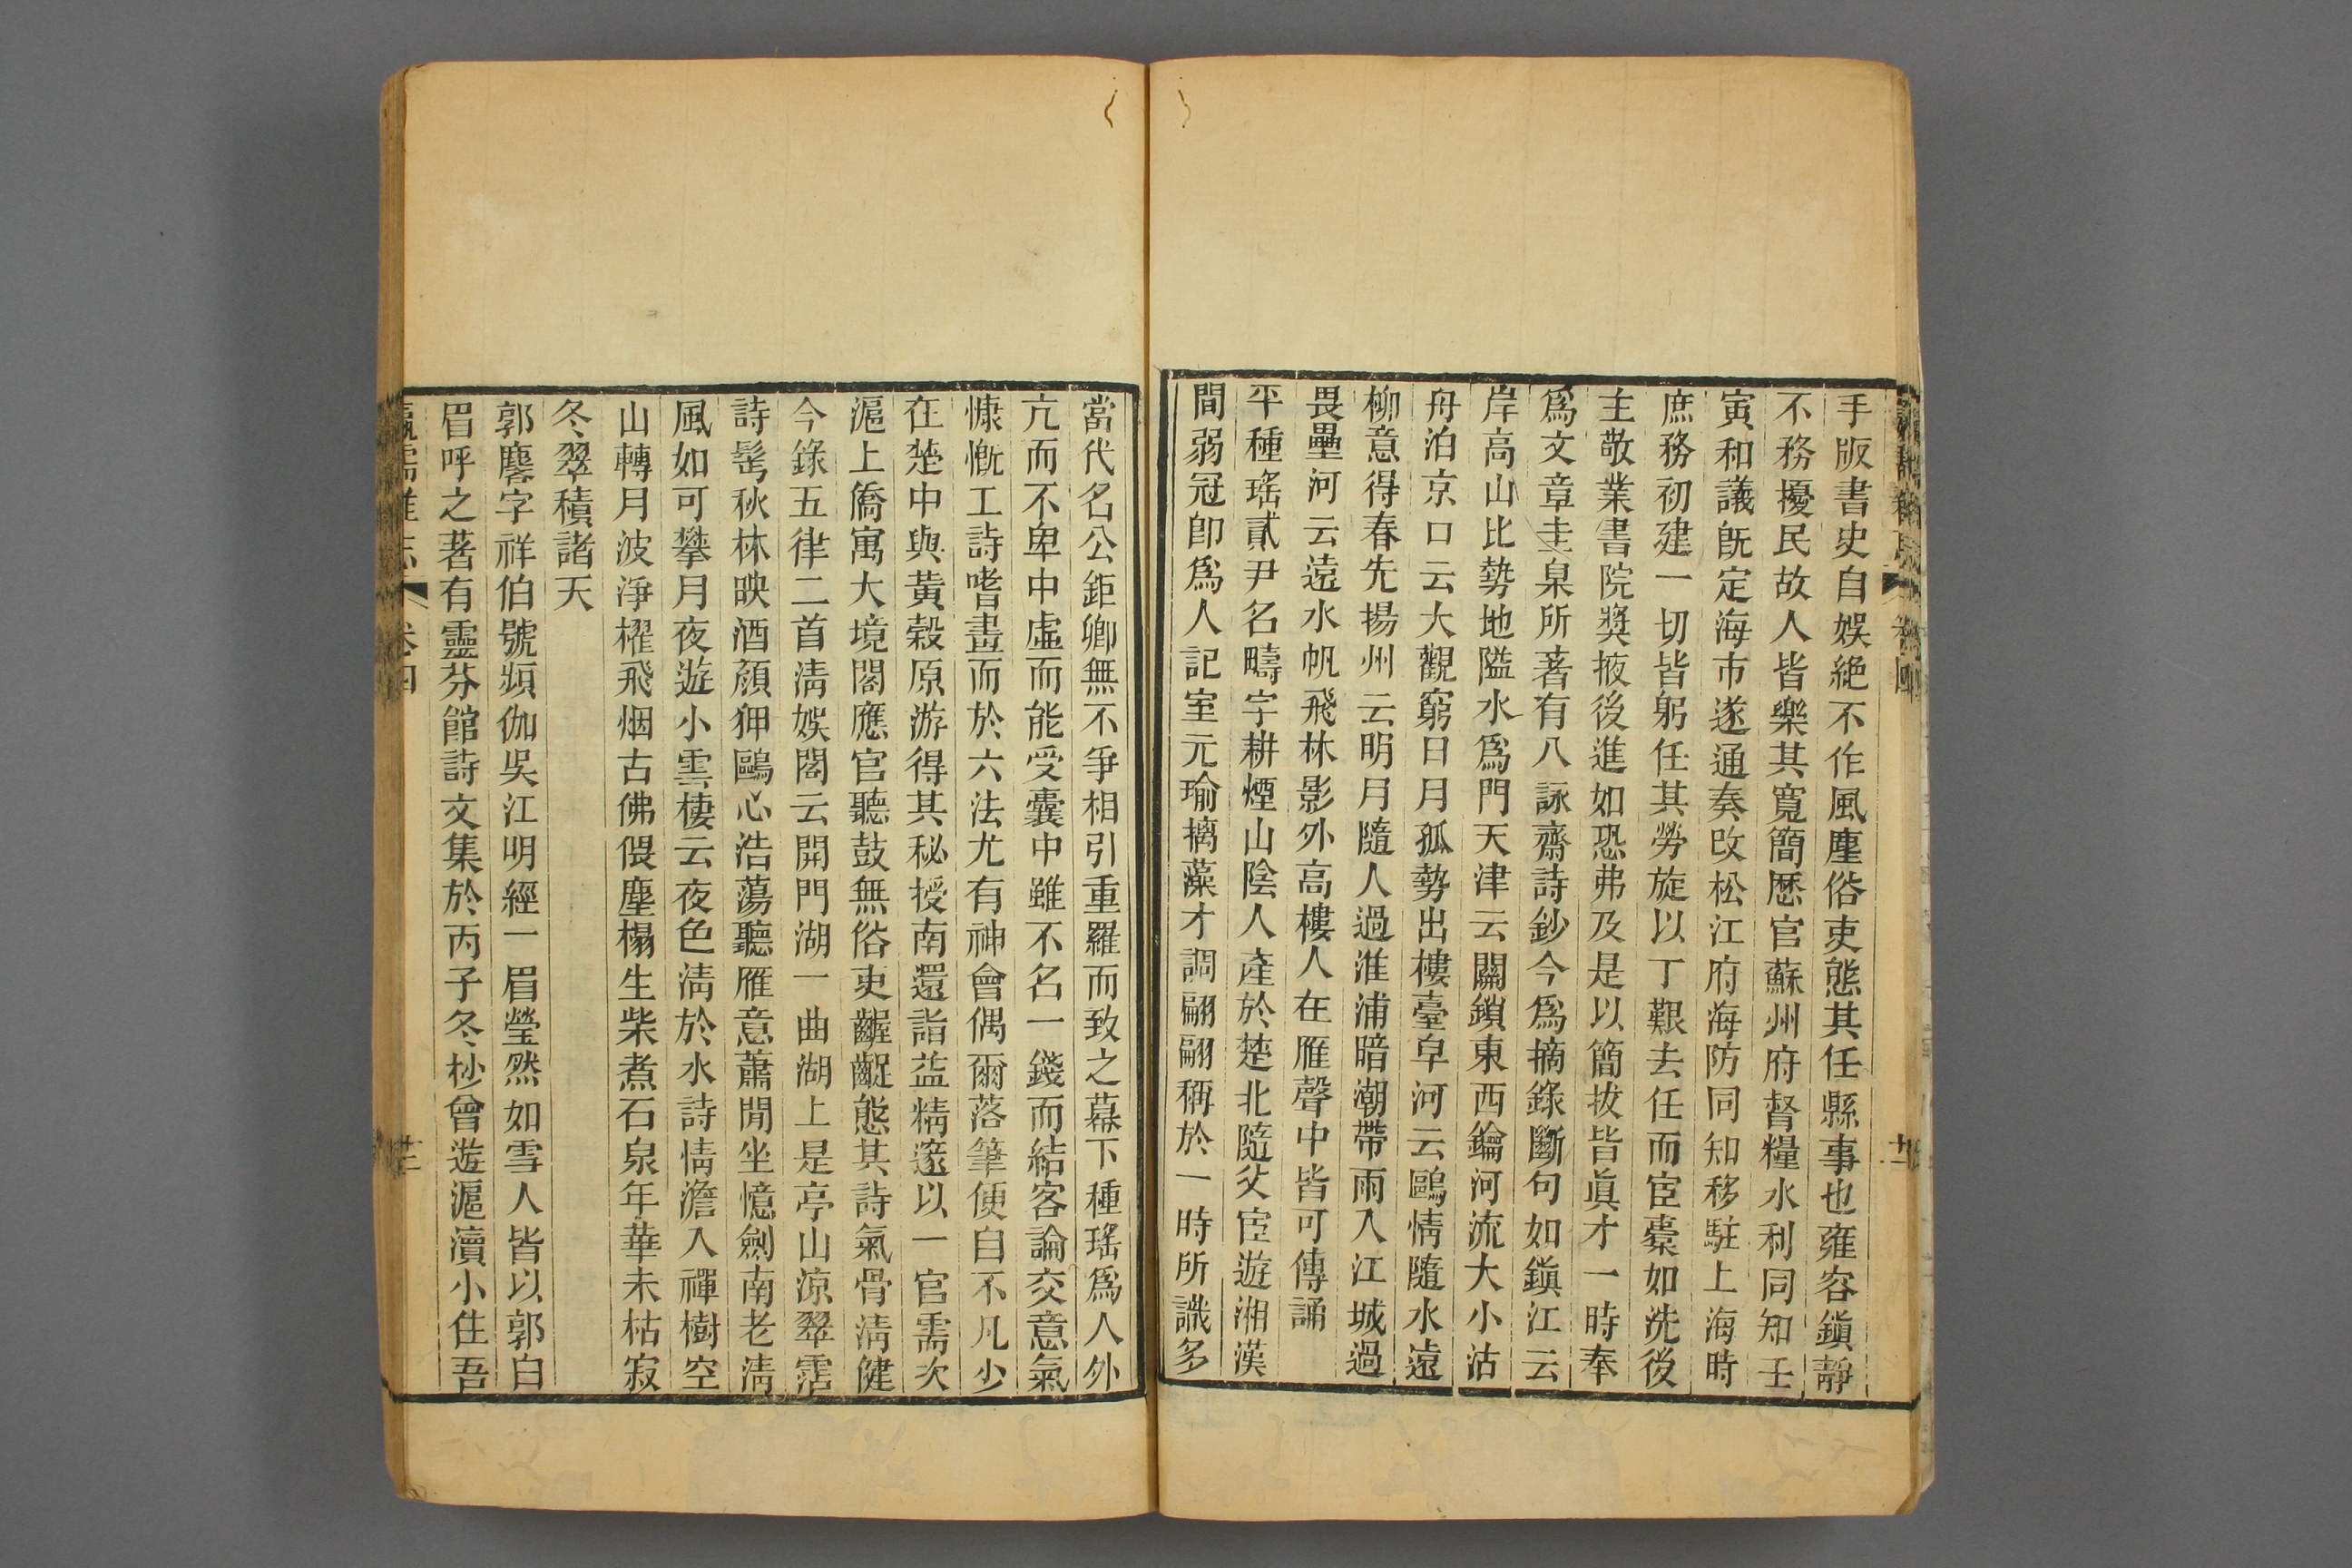 手版書史自娛絕不作風塵俗吏態其任縣事也雍容鎭靜
不務擾民故人皆樂其寬簡歷官蘇州府督糧水利同知壬
寅和議旣定海市遂通奏改松江府海防同知移駐上海時
庶務初建一切皆躬任其勞旋以丁艱去任而宦橐如洗後
主敬業書院獎掖後進如恐弗及是以簡拔皆眞才一時奉
爲文章圭臬所著有八詠齋詩鈔今爲摘錄斷句如鎭江云
岸高山比勢地隘水爲門天津云關鎖東西鑰河流大小沽
舟泊京口云大觀窮日月孤勢出樓臺阜河云鷗情隨水遠
柳意得春先揚州云明月隨人過淮浦暗潮帶雨入江城過
畏壘河云遠水帆飛林影外高樓人在雁聲中皆可傳誦
平種瑤貳尹名疇字耕煙山陰人產於楚北隨父宦遊湘漢
間弱冠卽爲人記室元瑜摛藻才調翩翩稱於一時所識多
當代名公鉅卿無不爭相引重羅而致之幕下種瑤爲人外
亢而不卑中虛而能受囊中雖不名一錢而結客論交意氣
慷慨工詩嗜畫而於六法尤有神會偶爾落筆便自不凡少
在楚中與黃穀原游得其秘授南還詣益精邃以一官需次
滬上僑寓大境閣應官聽鼓無俗吏齷齪態其詩氣骨淸健
今錄五律二首淸娛閣云開門湖一曲湖上是亭山涼翠霑
詩髩秋林映酒顏狎鷗心浩蕩聽雁意蕭閒坐憶劍南老淸
風如可攀月夜遊小雲棲云夜色淸於水詩情澹入禪樹空
山轉月波淨櫂飛烟古佛偎塵榻生柴煮石泉年華未枯寂
冬翠積諸天
郭麐字祥伯號頻伽吳江明經一眉瑩然如雪人皆以郭白
眉呼之著有靈芬館詩文集於丙子冬杪曾遊滬瀆小住吾
瀛壖雜志 卷四 十二